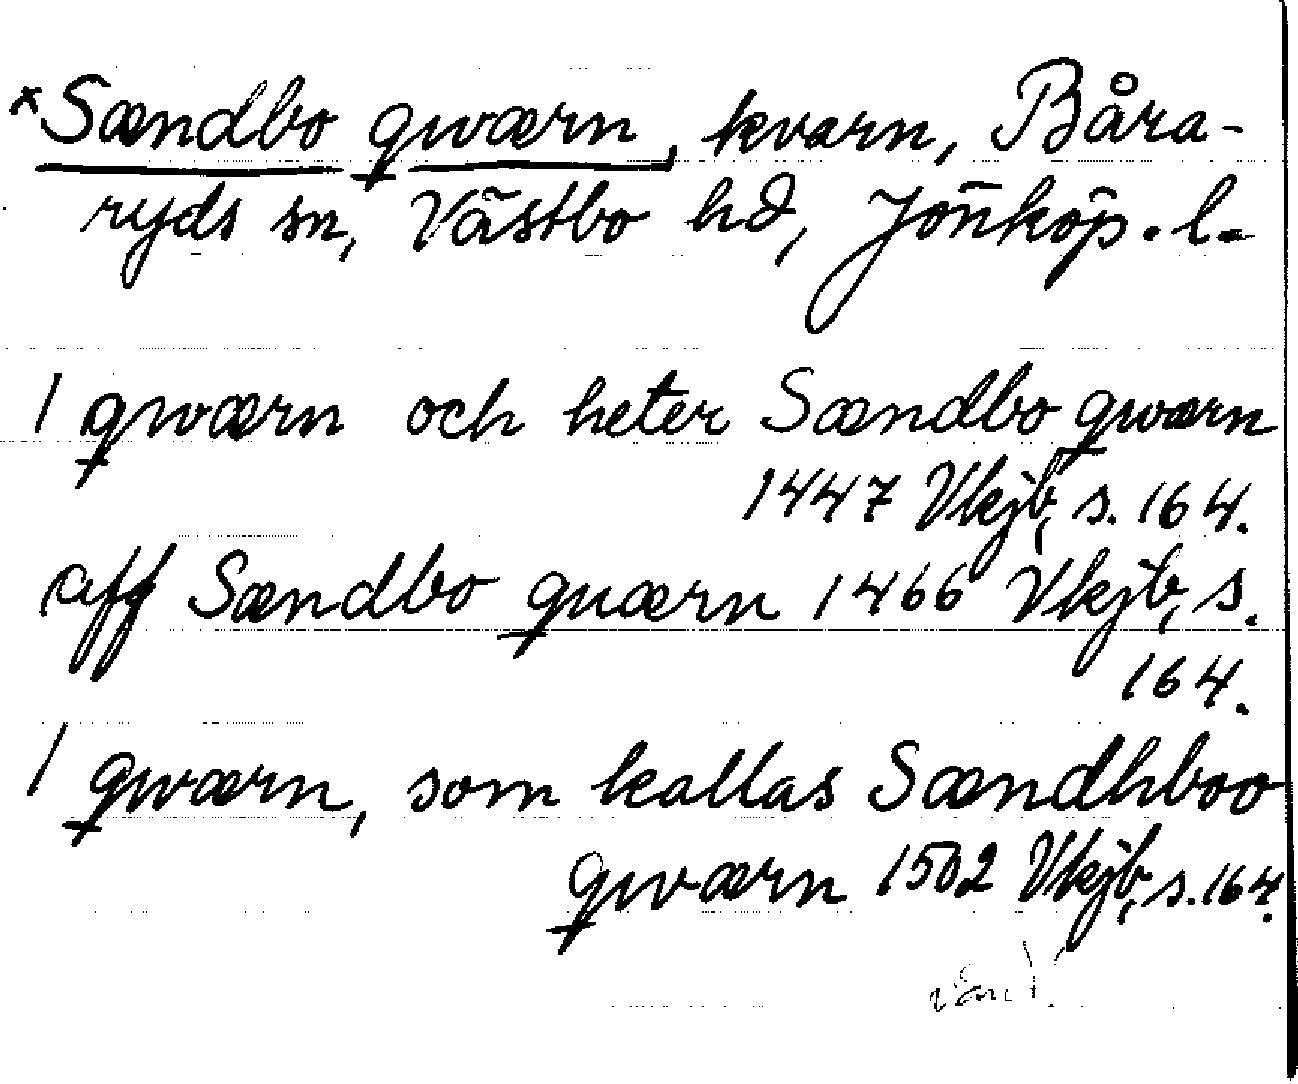 *Sændbo qwærn, kvarn, Båra-
ryds sn, Västbo hd, Jönköp. l.
1 qwærn och heter Sændbo qwærn
1447 Vkjb, s. 164.
aff Sændbo quærn 1466 Vkjb, s.
164.
1 qwærn, som kallas Sændhboo
qwærn 1502 Vkjb, s. 164.
vänd!